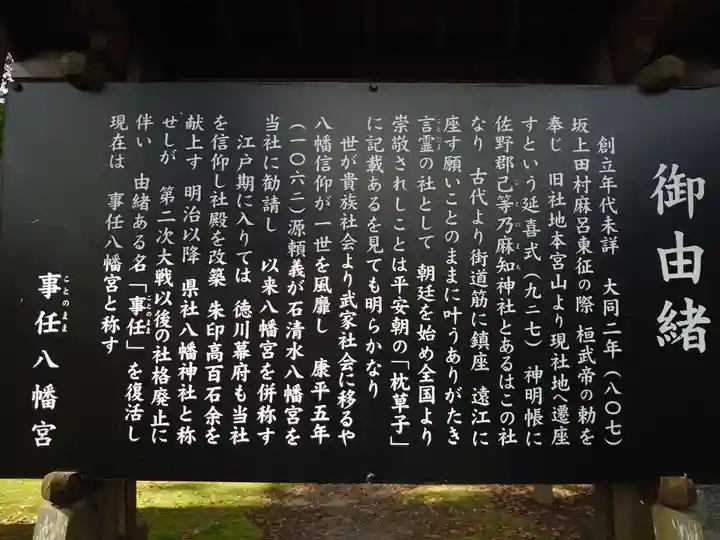 御由緒
創立年代未詳 大同二年(八〇七)
坂上田村麻呂東征の際 桓武帝の勅を
奉じ 旧社地本宮山より現社地へ遷座
すという延喜式(九二七) 神明帳に
佐野郡己等乃麻知神社とあるはこの社
なり 古代より街道筋に鎮座 遠江に
座す願いことのままに叶うありがたき
言霊の社として 朝廷を始め全国より
崇敬されしことは平安朝の「枕草子」
に記載あるを見ても明らかなり
世が貴族社会より武家社会に移るや
八幡信仰が一世を風靡し 康平五年
(一〇六二)源頼義が石清水八幡宮を
当社に勧請し 以来八幡宮を併称す
江戸期に入りては 徳川幕府も当社
を信仰し社殿を改築 朱印高百石余を
献上す 明治以降 県社八幡神社と称
せしが 第二次大戦以後の社格廃止に
伴い 由緒ある名「事任」を復活し
現在は 事任八幡宮と称す
事任八幡宮